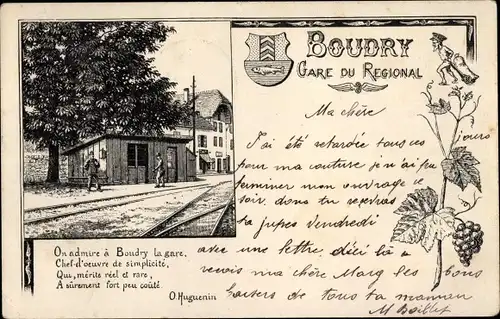 BOUDRY
GARE DU REGIONAL
Ma chère
J'ai été retardée tous ces jours
pour ma couture je n'ai peu
terminer mon ouvrage ce
soir donc tu recevras
ta jupes Vendredi
avec une lettre, d'ici là à
revoir ma chère Marg les bons
baisers de tous ta maman
M
On admire à Boudry la gare,
Chef-d'oeuvre de simplicité,
Qui, mérite réel et rare,
A sûrement fort peu coûté.
O. Huguenin